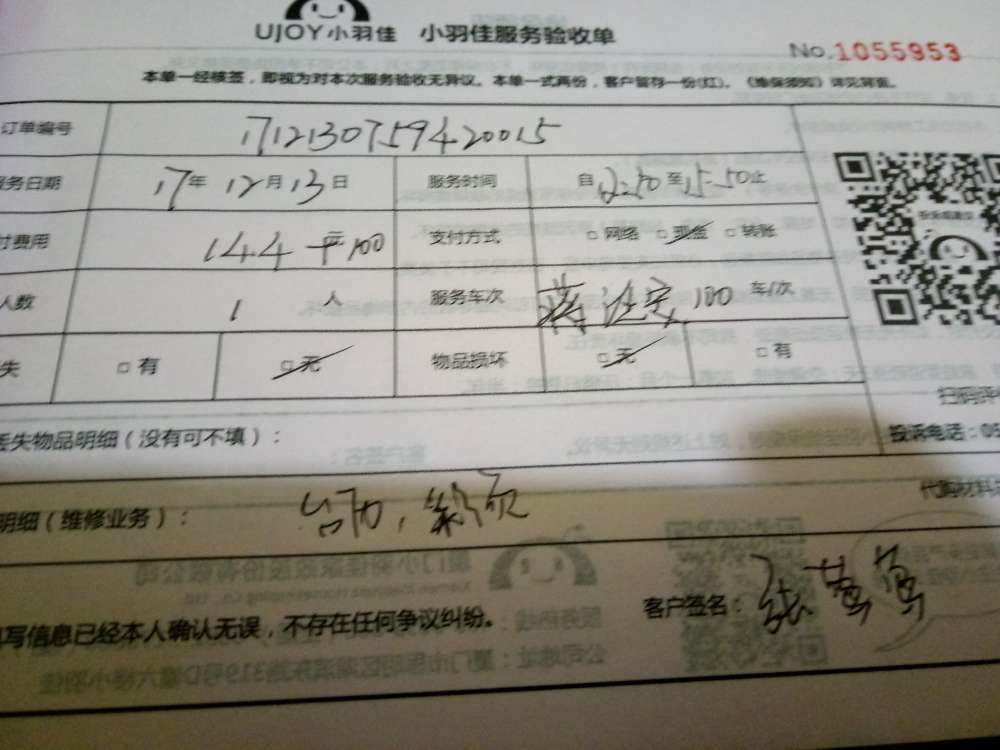 UJOY小羽佳 小羽佳服务验收单
No.1055953
本单一经核签，即视为对本次服务验收无异议。本单一式两份，客户留存一份(红)。《维保须知》详见背面。
订单编号 1712130759420015
服务日期 17年12月13日 服务时间 自12:50至15:50止
付费用 144 元 100 支付方式 □网络 □现金 □转账
人数 1 人 服务车次 100 车/次
失 □有 □无 物品损坏 □无 □有
扫码评
丢失物品明细（没有可不填）：
投诉电话：05
代购材料
明细（维修业务）：
写信息已经本人确认无误，不存在任何争议纠纷。
客户签名：张